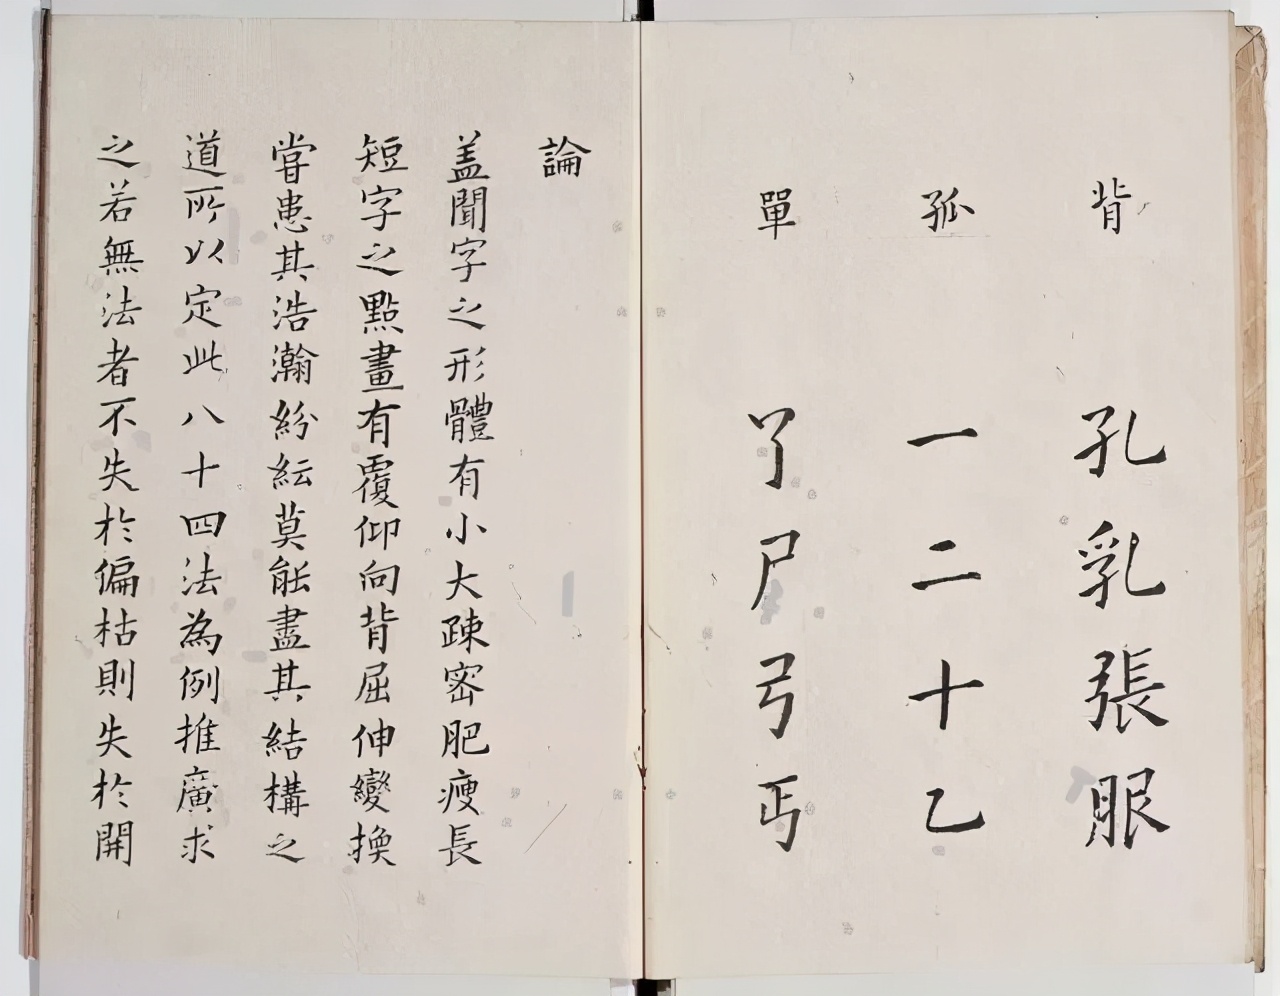 背 孔乳張服
孤 一二十乙
單 丫尸弓丐
論
盖聞字之形體有小大踈密肥瘦長
短字之點畫有覆仰向背屈伸變換
嘗患其浩瀚紛紜莫能盡其結構之
道所以定此八十四法為例推廣求
之若無法者不失於偏枯則失於開